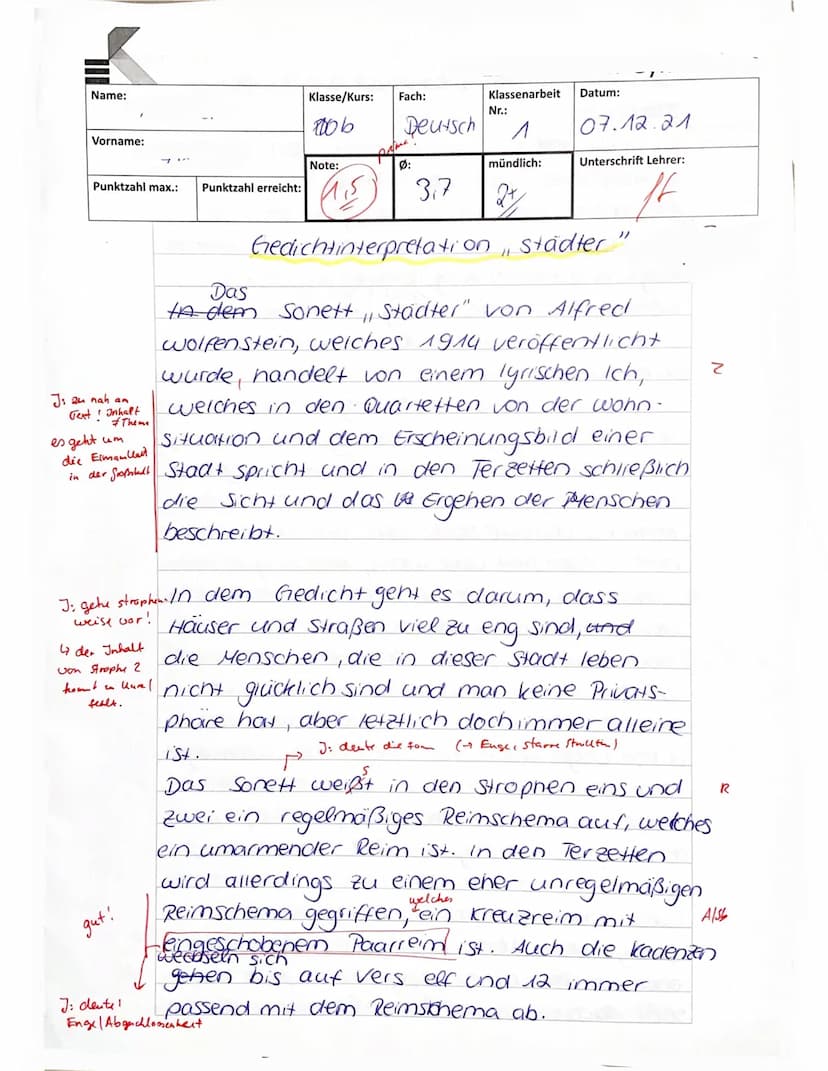 K
Name:
Klasse/Kurs:
Fach:
Klassenarbeit
Nr.:
Datum:
10b
Deutsch
1
07.12.21
Vorname:
prima!
Note:
Ø:
mündlich:
Unterschrift Lehrer:
Punktzahl max.:
Punktzahl erreicht:
1,5
3,7
2+
Gedichtinterpretation „Städter"
Das
In dem Sonett „Städter" von Alfred
Wolfenstein, welches 1914 veröffentlicht
wurde, handelt von einem lyrischen Ich,
Z
welches in den Quartetten von der Wohn-
situation und dem Erscheinungsbild einer
Stadt spricht und in den Terzetten schließlich
die Sicht und das Ergehen der Menschen
beschreibt.
J: zu nah am
Text! Inhalt
≠ Thema
es geht um
die Einsamkeit
in der Großstadt
In dem Gedicht geht es darum, dass
Häuser und Straßen viel zu eng sind, und
die Menschen, die in dieser Stadt leben
nicht glücklich sind und man keine Privats-
phäre hat, aber letztlich doch immer alleine
ist.
J: gehe strophen-
weise vor!
↳ der Inhalt
von Strophe 2
fehlt.
J: deute die Form (→ Enge, starre Struktur)
Das Sonett weißt in den Strophen eins und
s
R
zwei ein regelmäßiges Reimschema auf, welches
ein umarmender Reim ist. In den Terzetten
wird allerdings zu einem eher unregelmäßigen
welches
Reimschema gegriffen, ein Kreuzreim mit
A/Sb
gut!
eingeschobenem Paarreim ist. Auch die Kadenzen
wechseln sich
gehen bis auf Vers elf und 12 immer
passend mit dem Reimschema ab.
J: deute!
Enge/Abgeschlossenheit